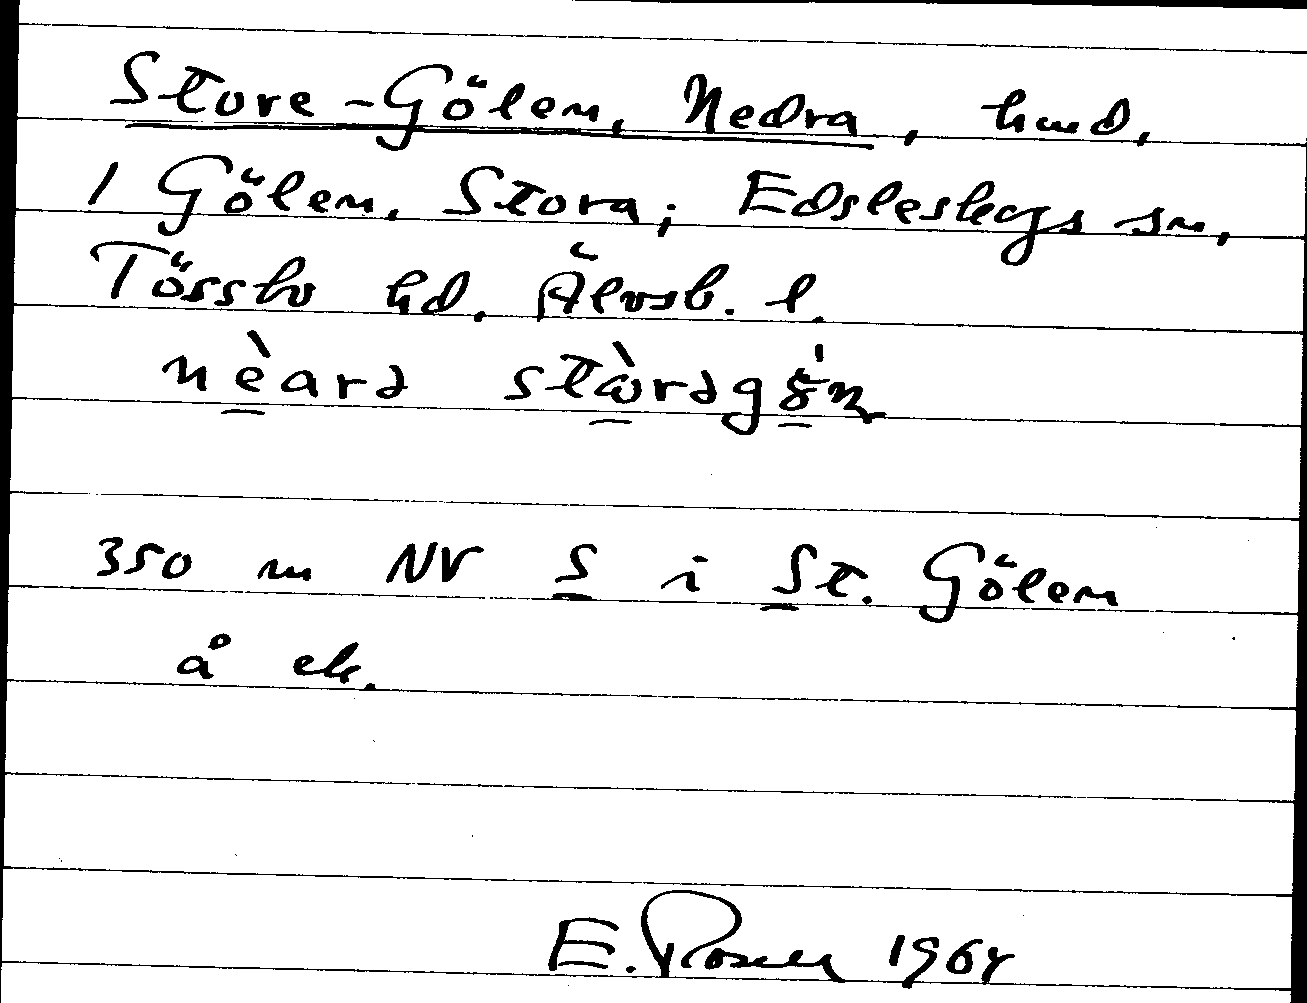 Store-Gölen, Nedra, hmd,
1 Gölen, Stora; Edsleskogs sn,
Tössbo hd. Älvsb. l.
350 m NV S i St. Gölen
å ek.
E. Rosell 1964